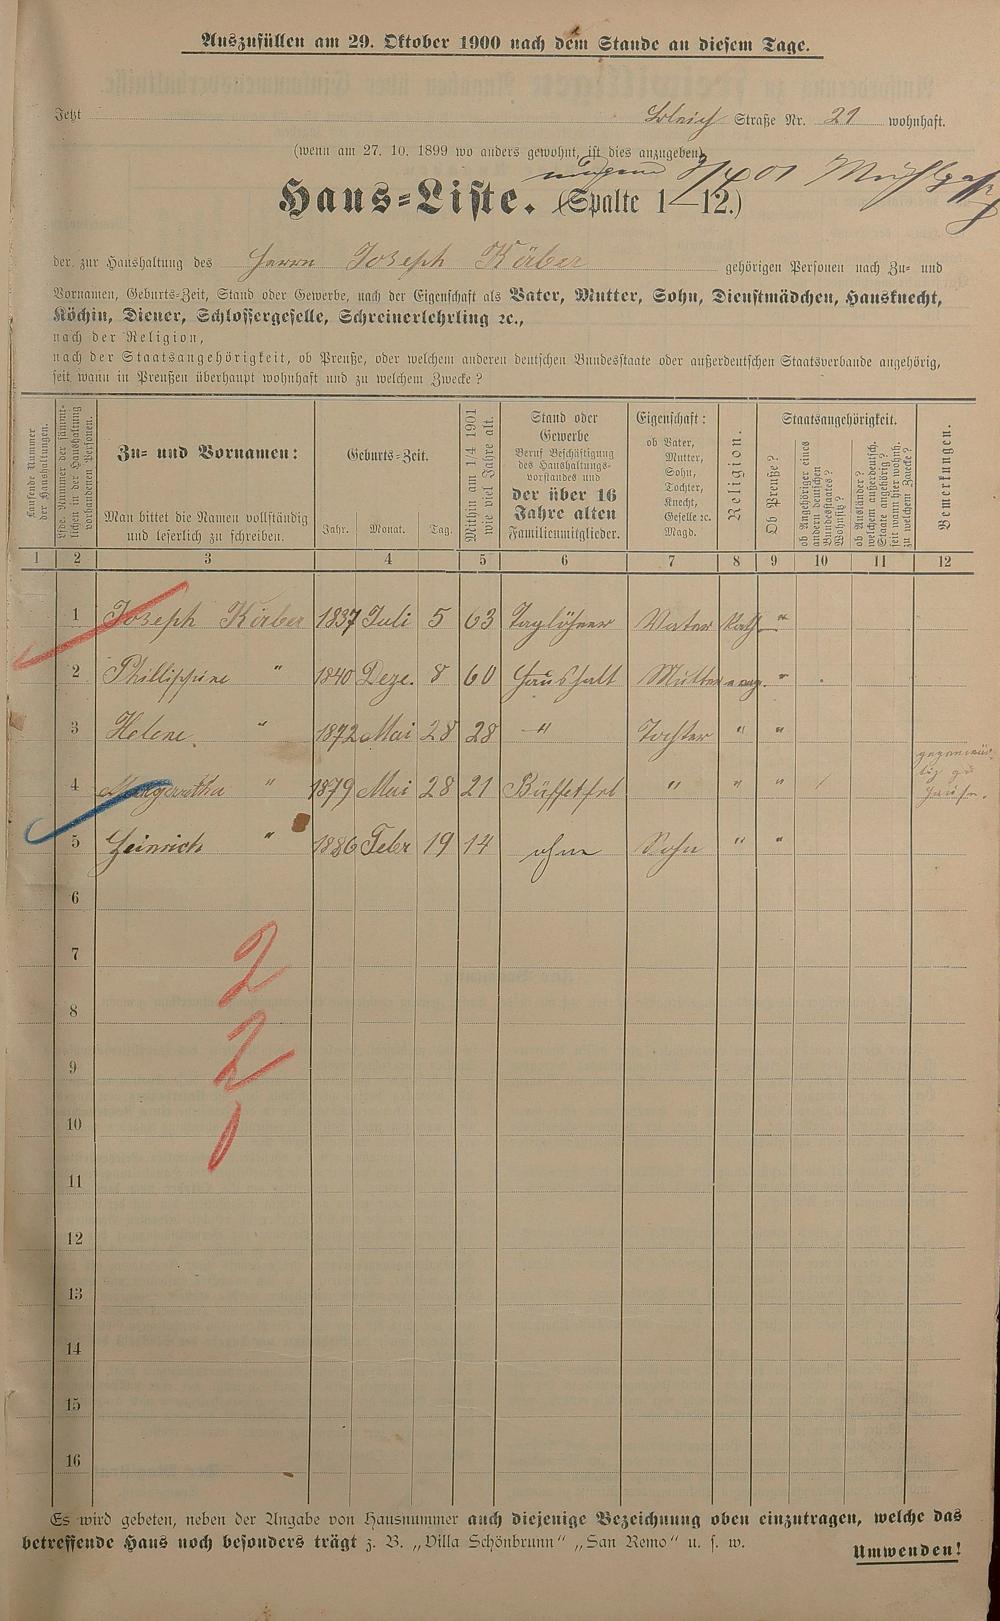 Auszufüllen am 29. Oktober 1900 nach dem Stande an diesem Tage.
Jetzt Bleich Straße Nr. 21 wohnhaft.
(wenn am 27. 10. 1899 wo anders gewohnt, ist dies anzugeben)
3/4 01 Mühlgasse
Haus-Liste. (Spalte 1—12.)
der zur Haushaltung des Herrn Joseph Körber gehörigen Personen nach Zu- und
Vornamen, Geburts-Zeit, Stand oder Gewerbe, nach der Eigenschaft als Vater, Mutter, Sohn, Dienstmädchen, Hausknecht,
Köchin, Diener, Schlossergeselle, Schreinerlehrling ꝛc.,
nach der Religion,
nach der Staatsangehörigkeit, ob Preuße, oder welchem anderen deutschen Bundesstaate oder außerdeutschen Staatsverbande angehörig,
seit wann in Preußen überhaupt wohnhaft und zu welchem Zwecke?
Laufende Nummer
der Haushaltungen.
Lfde. Nummer der sämmt-
lichen in der Haushaltung
vorhandenen Personen.
Zu- und Vornamen:
Man bittet die Namen vollständig
und leserlich zu schreiben.
Geburts-Zeit.
Jahr. Monat. Tag.
Mithin am 1/4 1901
wie viel Jahre alt.
Stand oder
Gewerbe
Beruf Beschäftigung
des Haushaltungs-
vorstandes und
der über 16
Jahre alten
Familienmitglieder.
Eigenschaft:
ob Vater,
Mutter,
Sohn,
Tochter,
Knecht,
Geselle ꝛc.
Magd.
Religion.
Staatsangehörigkeit.
Ob Preuße?
ob Angehöriger eines
andern deutschen
Bundesstaates?
Wohnsitz?
ob Ausländer?
welchem außerdeutsch.
Staate angehörig?
seit wann hier wohnh.
zu welchem Zwecke?
Bemerkungen.
1 2 3 4 5 6 7 8 9 10 11 12
1 Joseph Körber 1837 Juli 5 63 Taglöhner Vater Kath. "
2 Phillippine " 1840 Deze. 8 60 Haushalt Mutter evag. "
3 Helene " 1872 Mai 28 28 " Tochter " "
4 Margaretha " 1879 Mai 28 21 Büffetfrl " " " gegenwär-
tig zu
Hause.
5 Heinrich " 1886 Febr 19 14 ohne Sohn " "
6
7
2
8
2
9
10
1
11
12
13
14
15
16
Es wird gebeten, neben der Angabe von Hausnummer auch diejenige Bezeichnung oben einzutragen, welche das
betreffende Haus noch besonders trägt z. B. „Villa Schönbrunn“ „San Remo“ u. s. w.
Umwenden!